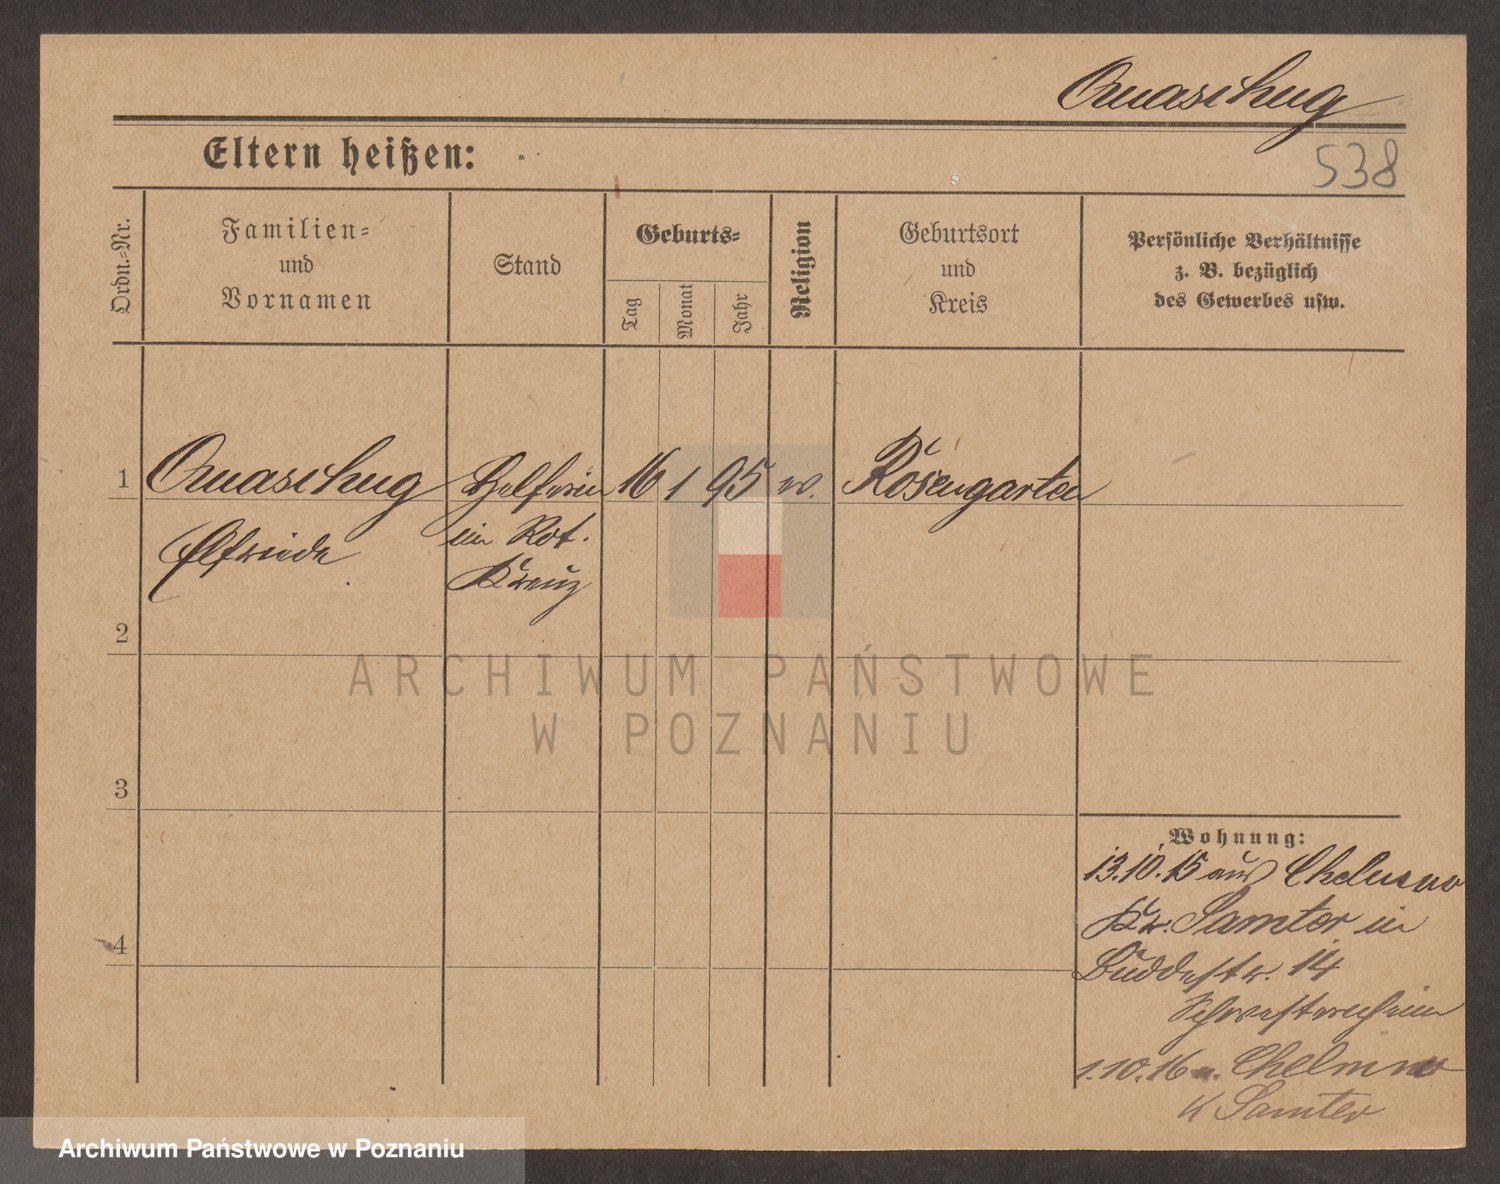 Quaschng
538
Eltern heißen:
Ordn.-Nr.
Familien-
und
Vornamen
Stand
Geburts-
Tag
Monat
Jahr
Religion
Geburtsort
und
Kreis
Persönliche Verhältnisse
z. B. bezüglich
des Gewerbes usw.
1
Helferin 16 1 95 ev. Rosengarten
Elfriede
im Rot.
Kreuz
2
3
4
Wohnung:
13.10.15 aus Chelmno
Kr. Samter in
Buddestr. 14
Schwesternheim
1.10.16 n. Chelmno
K Samter
ARCHIWUM PAŃSTWOWE
W POZNANIU
Archiwum Państwowe w Poznaniu